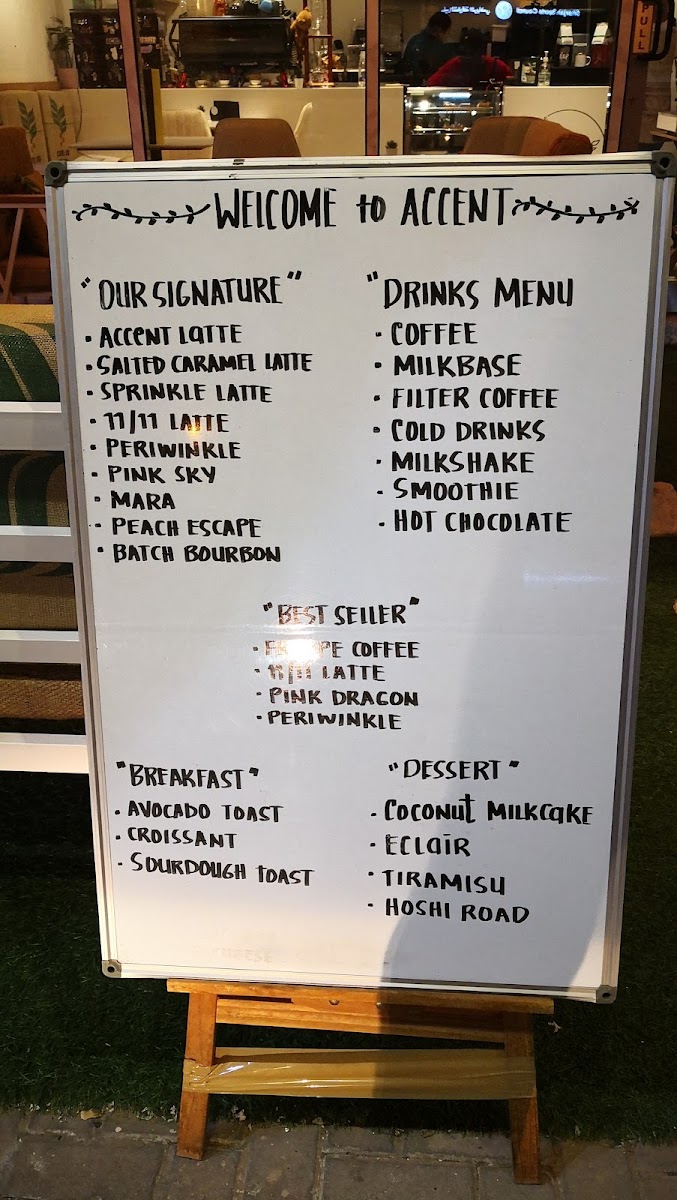 PULL
WELCOME to ACCENT
"OUR SIGNATURE"
• ACCENT LATTE
• SALTED CARAMEL LATTE
• SPRINKLE LATTE
• 11/11 LATTE
• PERIWINKLE
• PINK SKY
• MARA
• PEACH ESCAPE
• BATCH BOURBON
"DRINKS MENU
• COFFEE
• MILKBASE
• FILTER COFFEE
• COLD DRINKS
• MILKSHAKE
• SMOOTHIE
• HOT CHOCOLATE
"BEST SELLER"
• COFFEE
• 11/11 LATTE
• PINK DRAGON
• PERIWINKLE
"BREAKFAST"
• AVOCADO TOAST
• CROISSANT
• SOURDOUGH TOAST
"DESSERT"
• COCONUT MILKCAKE
• ECLAIR
• TIRAMISU
• HOSHI ROAD